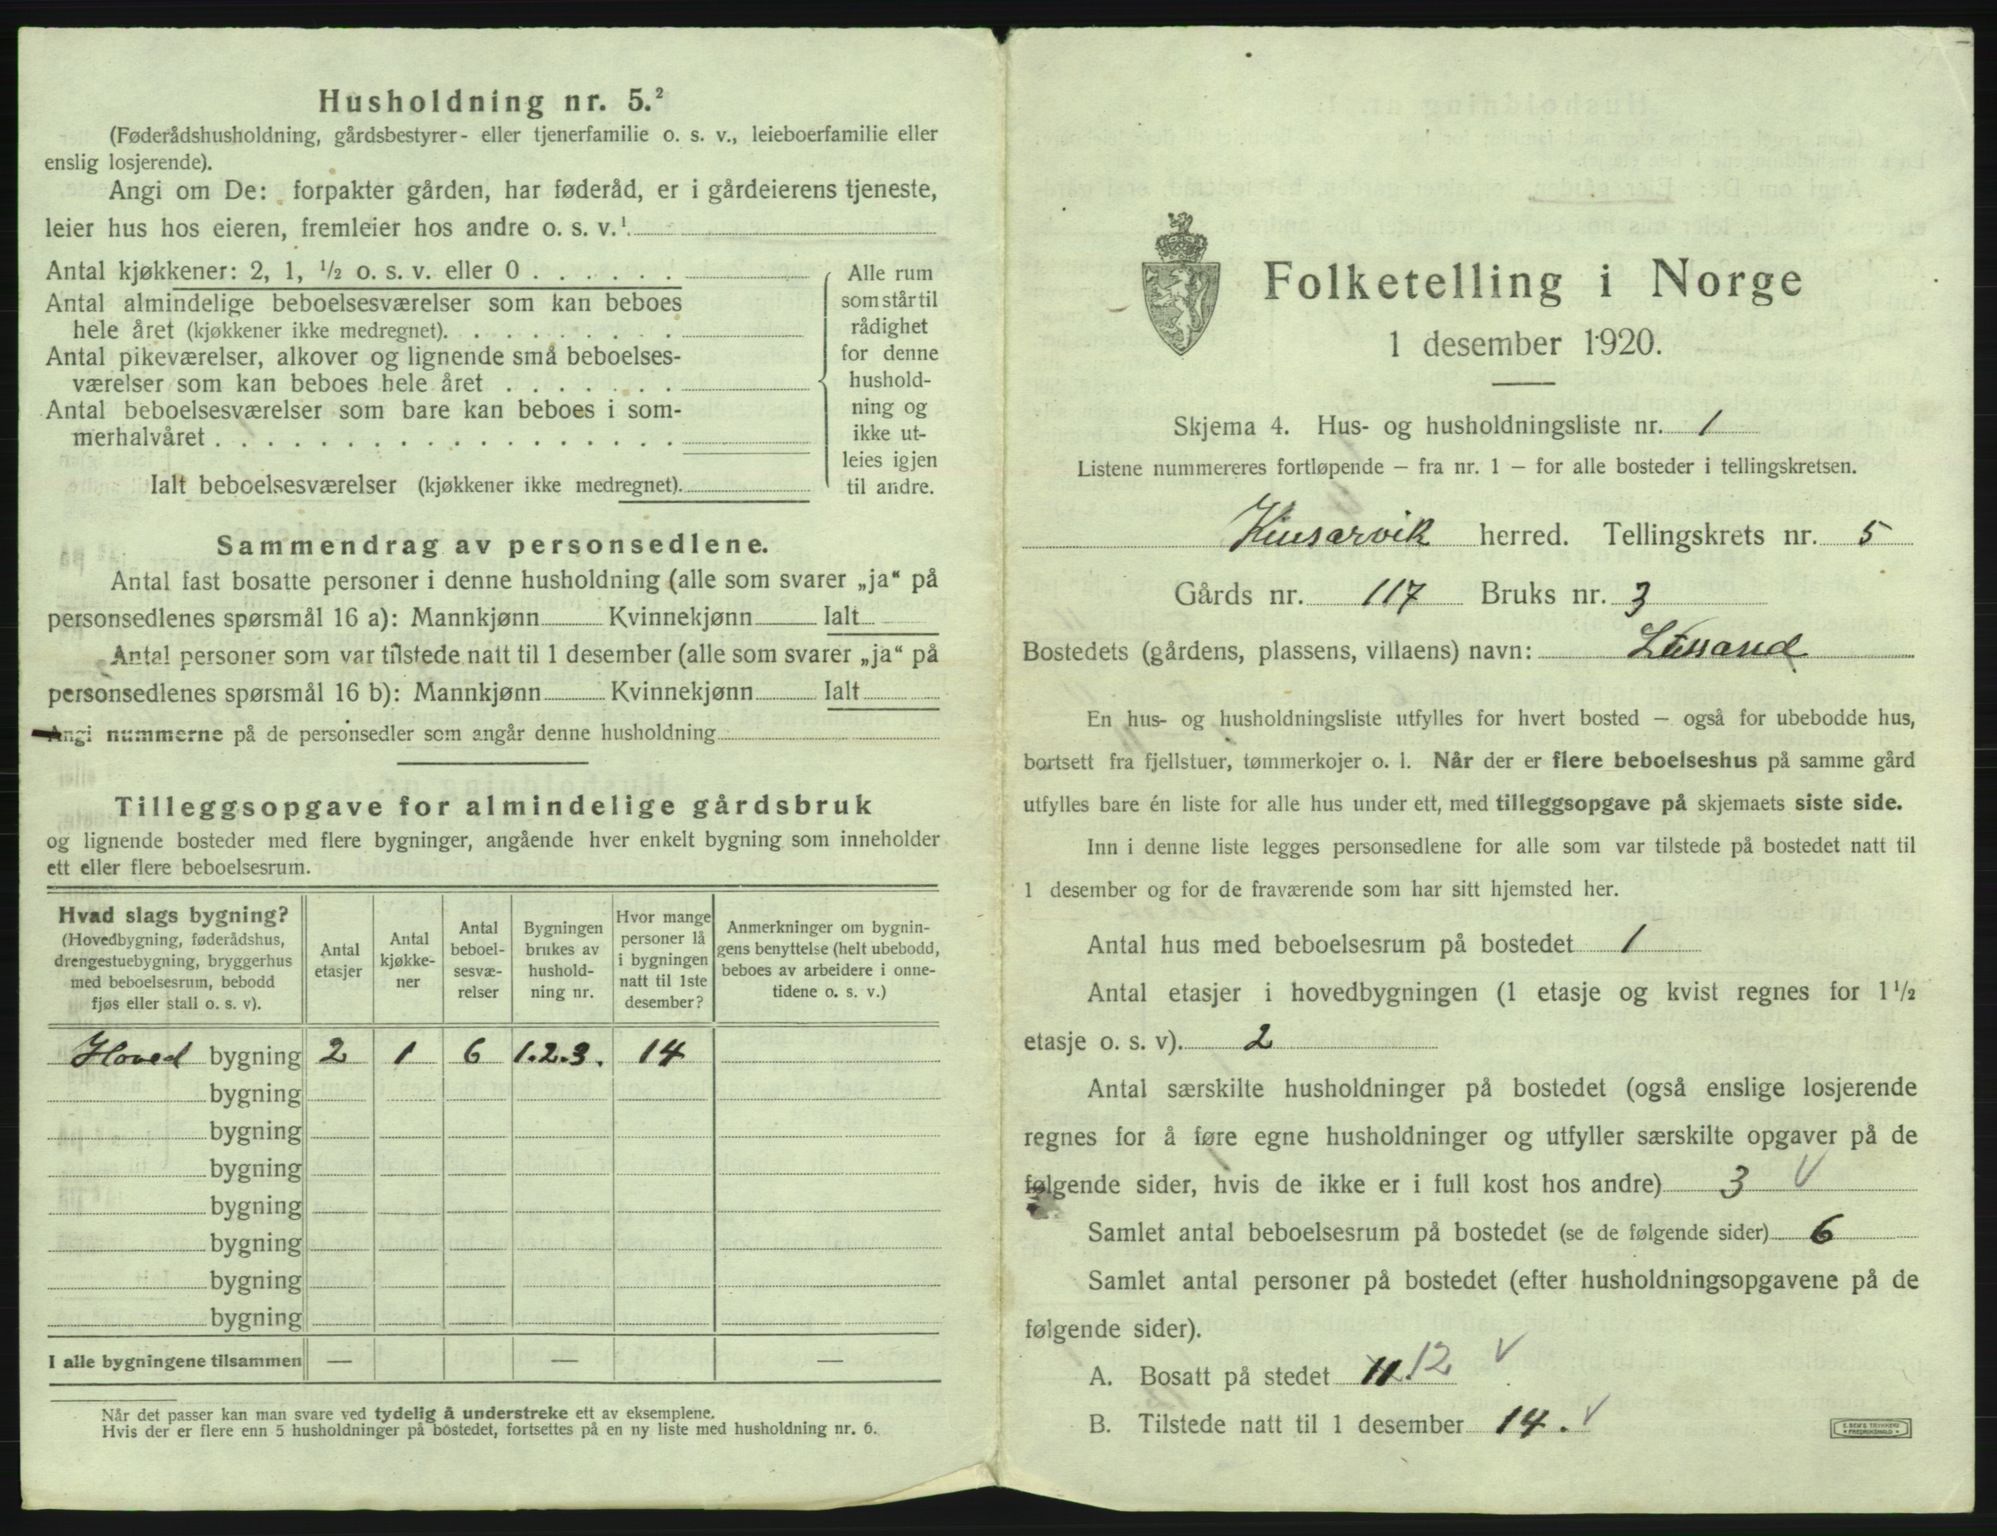 Husholdning nr. 5.²
(Føderådshusholdning, gårdsbestyrer- eller tjenerfamilie o. s. v., leieboerfamilie eller
enslig losjerende).
Angi om De: forpakter gården, har føderåd, er i gårdeierens tjeneste,
leier hus hos eieren, fremleier hos andre o. s. v.¹
Antal kjøkkener: 2, 1, ½ o. s. v. eller 0 . . . . . .
Antal almindelige beboelsesværelser som kan beboes
hele året (kjøkkener ikke medregnet). . . . . . . . .
Antal pikeværelser, alkover og lignende små beboelses-
værelser som kan beboes hele året . . . . . . .
Antal beboelsesværelser som bare kan beboes i som-
merhalvåret . . . . . . . . . . . . . . . . . .
Ialt beboelsesværelser (kjøkkener ikke medregnet).
Alle rum
som står til
rådighet
for denne
hushold-
ning og
ikke ut-
leies igjen
til andre.
Sammendrag av personsedlene.
Antal fast bosatte personer i denne husholdning (alle som svarer „ja“ på
personsedlenes spørsmål 16 a): Mannkjønn Kvinnekjønn Ialt
Antal personer som var tilstede natt til 1 desember (alle som svarer „ja“ på
personsedlenes spørsmål 16 b): Mannkjønn Kvinnekjønn Ialt
Angi nummerne på de personsedler som angår denne husholdning
Tilleggsopgave for almindelige gårdsbruk
og lignende bosteder med flere bygninger, angående hver enkelt bygning som inneholder
ett eller flere beboelsesrum.
Hvad slags bygning?
(Hovedbygning, føderådshus,
drengestuebygning, bryggerhus
med beboelsesrum, bebodd
fjøs eller stall o. s. v).
Antal
etasjer
Antal
kjøkke-
ner
Antal
beboel-
sesvæ-
relser
Bygningen
brukes av
hushold-
ning nr.
Hvor mange
personer lå
i bygningen
natt til 1ste
desember?
Anmerkninger om bygnin-
gens benyttelse (helt ubebodd,
beboes av arbeidere i onne-
tidene o. s. v.)
Hoved bygning 2 1 6 1.2.3. 14
bygning
bygning
bygning
bygning
bygning
bygning
bygning
I alle bygningene tilsammen — — —
Når det passer kan man svare ved tydelig å understreke ett av eksemplene.
Hvis der er flere enn 5 husholdninger på bostedet, fortsettes på en ny liste med husholdning nr. 6.
Folketelling i Norge
1 desember 1920.
Skjema 4. Hus- og husholdningsliste nr. 1
Listene nummereres fortløpende – fra nr. 1 – for alle bosteder i tellingskretsen.
Kinsarvik herred. Tellingskrets nr. 5
Gårds nr. 117 Bruks nr. 3
Bostedets (gårdens, plassens, villaens) navn:
En hus- og husholdningsliste utfylles for hvert bosted – også for ubebodde hus,
bortsett fra fjellstuer, tømmerkojer o. l. Når der er flere beboelseshus på samme gård
utfylles bare én liste for alle hus under ett, med tilleggsopgave på skjemaets siste side.
Inn i denne liste legges personsedlene for alle som var tilstede på bostedet natt til
1 desember og for de fraværende som har sitt hjemsted her.
Antal hus med beboelsesrum på bostedet 1
Antal etasjer i hovedbygningen (1 etasje og kvist regnes for 1½
etasje o. s. v). 2
Antal særskilte husholdninger på bostedet (også enslige losjerende
regnes for å føre egne husholdninger og utfyller særskilte opgaver på de
følgende sider, hvis de ikke er i full kost hos andre) 3 V
Samlet antal beboelsesrum på bostedet (se de følgende sider) 6
Samlet antal personer på bostedet (efter husholdningsopgavene på de
følgende sider).
A. Bosatt på stedet 11 12 V
B. Tilstede natt til 1 desember 14. V